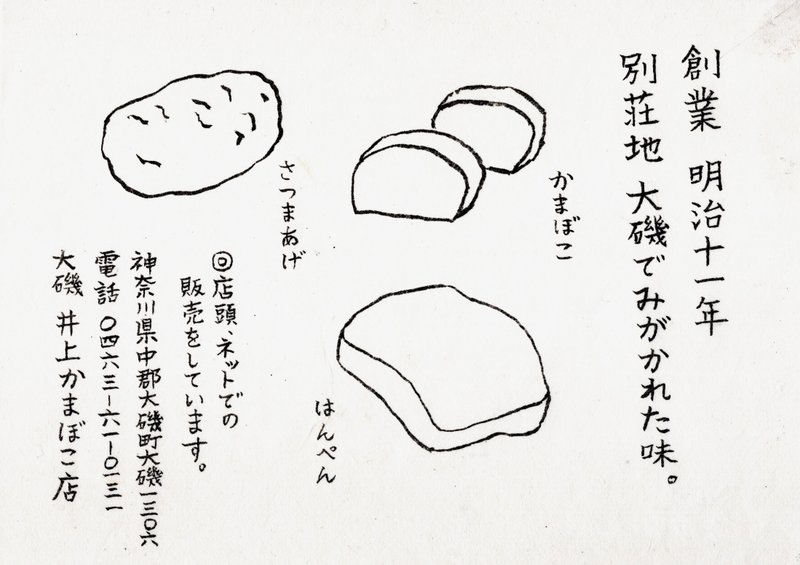 創業 明治十一年
別荘地 大磯でみがかれた味。
かまぼこ
はんぺん
さつまあげ
◎店頭、ネットでの
販売をしています。
神奈川県中郡大磯町大磯一三〇六
電話 〇四六三-六一-〇一三一
大磯 井上かまぼこ店